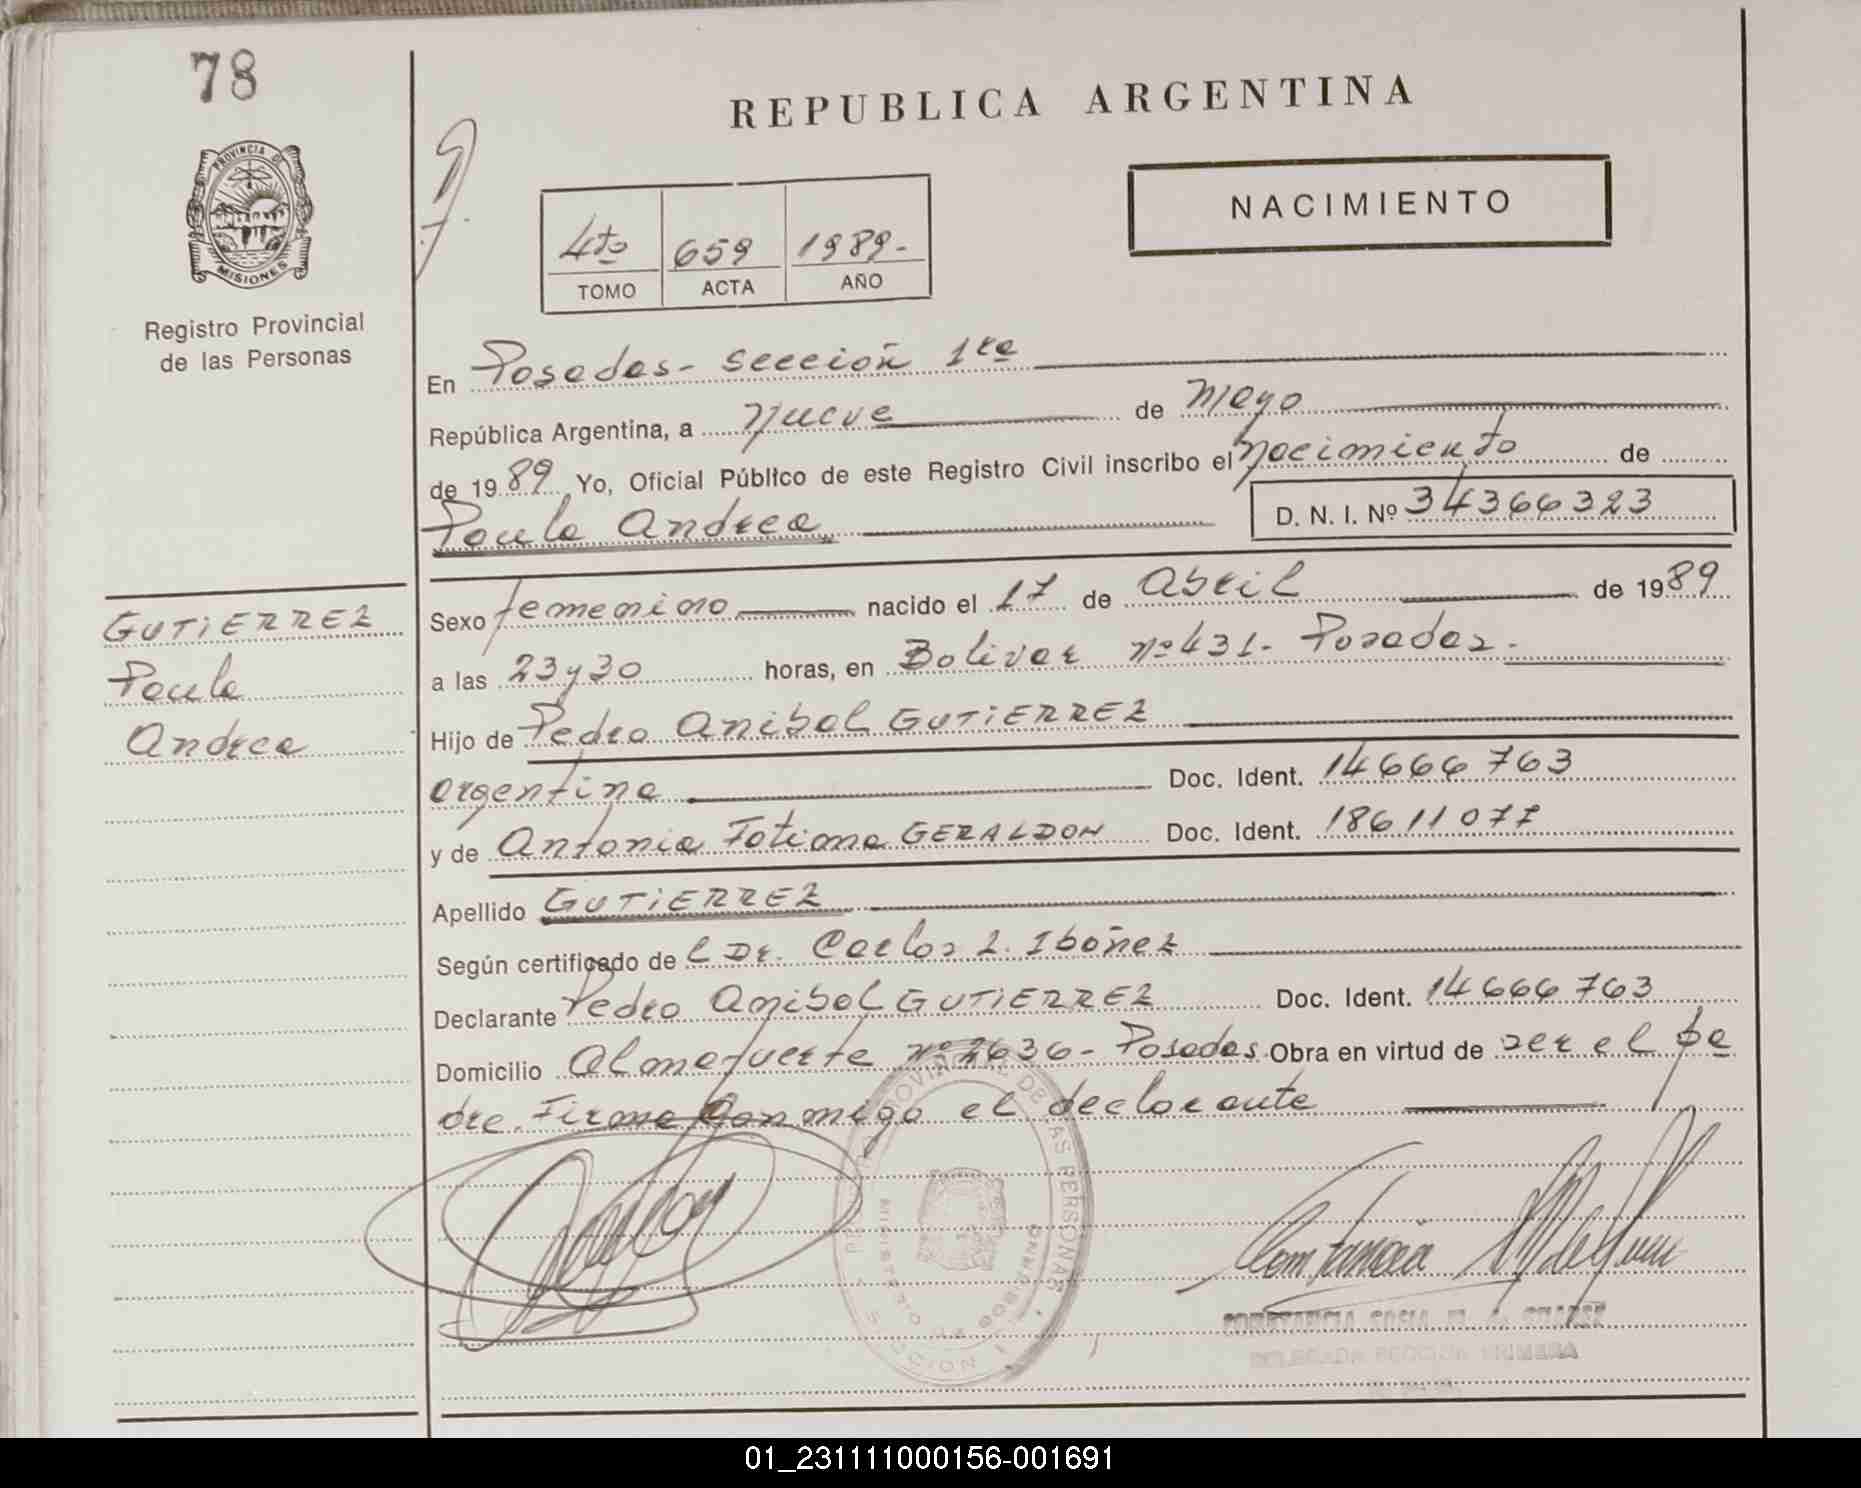 78
REPUBLICA ARGENTINA
PROVINCIA DE
MISIONES
Registro Provincial
de las Personas
NACIMIENTO
4to 659 1989-
TOMO ACTA AÑO
En Posadas- sección 1ra
República Argentina, a Nueve de Mayo
de 1989 Yo, Oficial Público de este Registro Civil inscribo el nacimiento de
Paula Andrea D. N. I. Nº 34366323
GUTIERREZ
Paula
Andrea
Sexo femenino nacido el 17 de Abril de 1989
a las 23y30 horas, en Bolivar nº431- Posadas-
Hijo de Pedro Anibal GUTIERREZ
argentino Doc. Ident. 14666763
y de Antonia Fatima GERALDON Doc. Ident. 18611077
Apellido GUTIERREZ
Según certificado de L Dr. Carlos L. Ibañez
Declarante Pedro Anibal GUTIERREZ Doc. Ident. 14666763
Domicilio Almafuerte nº2636- Posadas. Obra en virtud de ser el pa
dre. Firma conmigo el declarante
PROVINCIAL DE LAS PERSONAS
MINISTERIO DE GOBIERNO
SECCION 1
DELEGADA SECCION PRIMERA
01_231111000156-001691